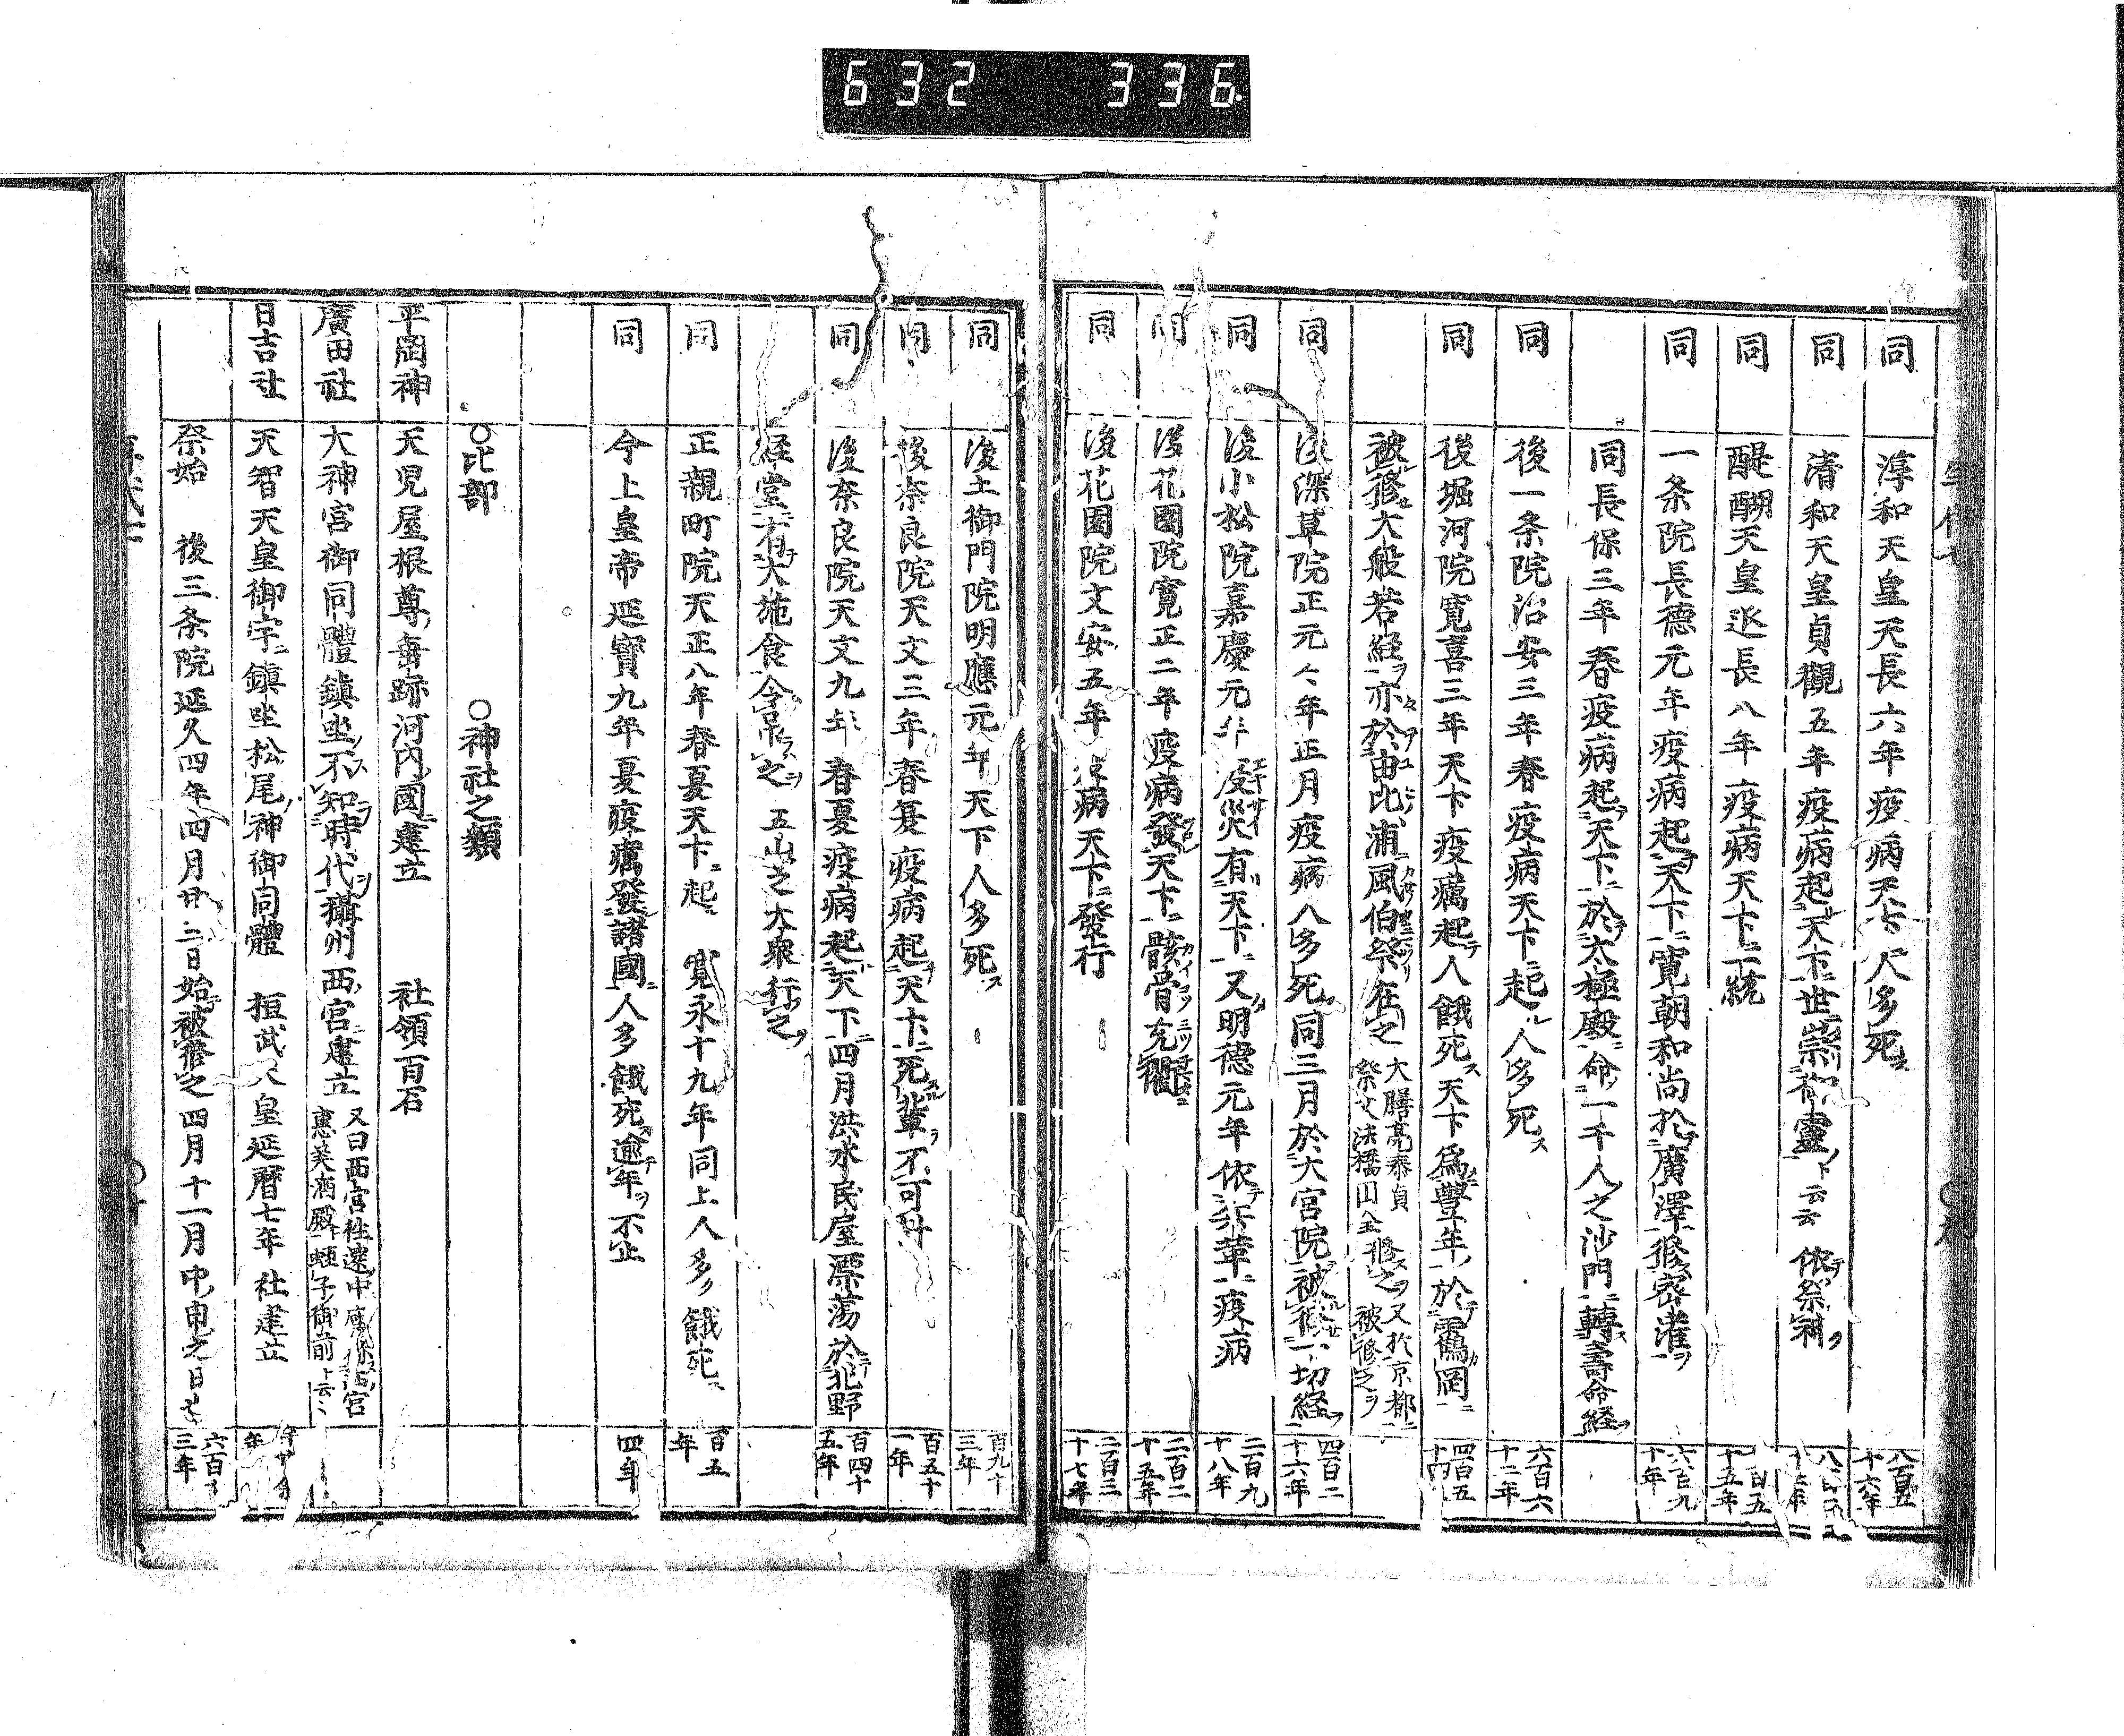 632 336.
同 淳和天皇天長六年疫病天下人多死ス 八百五十六年
同 清和天皇貞觀五年疫病起天下世崇御靈ト云云 依祭神ヲ
同 醍醐天皇延長八年疫病天下一統 百五十五年
同 一条院長德元年疫病起天下寛朝和尚於廣澤修密灌ヲ 六百九十年
同長保三年春疫病起天下於太極殿命一千人之沙門轉壽命経ヲ
同 後一条院治安三年春疫病天下起ル人多死ス 六百六十二年
同 後堀河院寛喜三年天下疫癘起テ人餓死ス天下為豐年於靏岡ニ 四百五十四
被修大般若経ヲ亦於由比浦風伯祭在之 大膳亮泰貞 祭文法橋圓全修之 又於京都被修之ヲ
同 後深草院正元々年正月疫病人多死同三月於大宮院被修一切経ヲ 四百二十六年
同 後小松院嘉慶元年疫災有天下ニ又明德元年依兵革疫病 二百九十八年
同 後花園院寛正二年疫病發天下ニ骸骨充衢ニ 二百二十五年
同 後花園院文安五年疫病天下ニ發行 二百三十七年
同 後土御門院明應元年天下人多死ス 百九十三年
同 後奈良院天文三年春夏疫病起天下ニ死輩不可計 百五十一年
同 後奈良院天文九年春夏疫病起天下ニ四月洪水民屋漂蕩於北野 百四十五年
経堂有大施食令吊之 五山之大衆行之
同 正親町院天正八年春夏天下ニ起 寛永十九年同上人多ク餓死ス 百五年
同 今上皇帝延寶九年夏疫癘發諸國ニ人多餓死逾年ヲ不止 四年
○比部 ○神社之類
平岡神 天児屋根尊垂跡河内國建立 社領百石
廣田社 大神宮御同體鎮坐不知時代攝州西宮建立 又曰西宮社遷中廣保活宮惠美酒殿蛭子御前ト云々
日吉社 天智天皇御宇ニ鎮坐松尾神御同體 桓武天皇延暦七年社建立
祭始 後三条院延久四年四月廿二日始被修之四月十一月中ノ申之日也 六百十三年